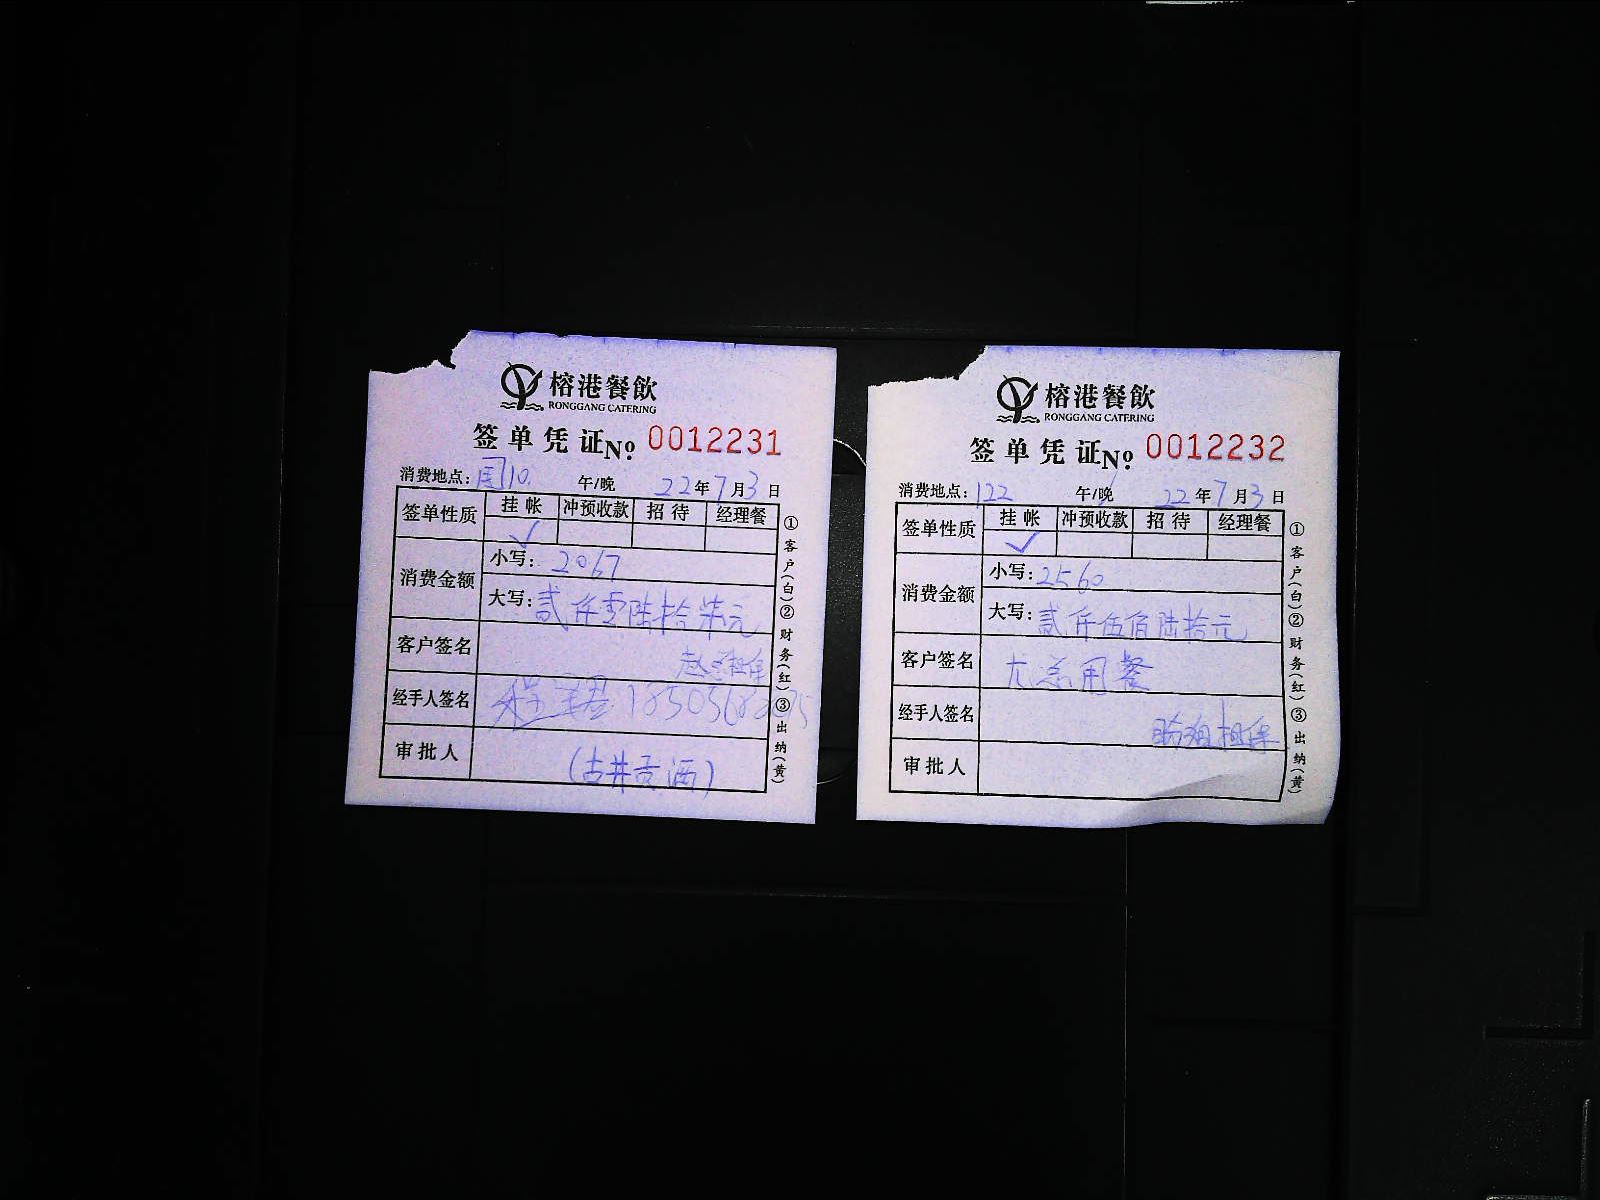 榕港餐飲
RONGGANG CATERING
签单凭证No. 0012231
消费地点: 10. 午/晚 22年7月3日
签单性质 挂帐 冲预收款 招待 经理餐
✓
消费金额 小写: 2067
大写: 贰仟零陆拾柒元
客户签名
经手人签名
审批人 (古井贡酒)
①客户(白)②财务(红)③出纳(黄)
榕港餐飲
RONGGANG CATERING
签单凭证No. 0012232
消费地点: 122 午/晚 22年7月3日
签单性质 挂帐 冲预收款 招待 经理餐
✓
消费金额 小写: 2560
大写: 贰仟伍佰陆拾元
客户签名 尤总用餐
经手人签名 担保
审批人
①客户(白)②财务(红)③出纳(黄)